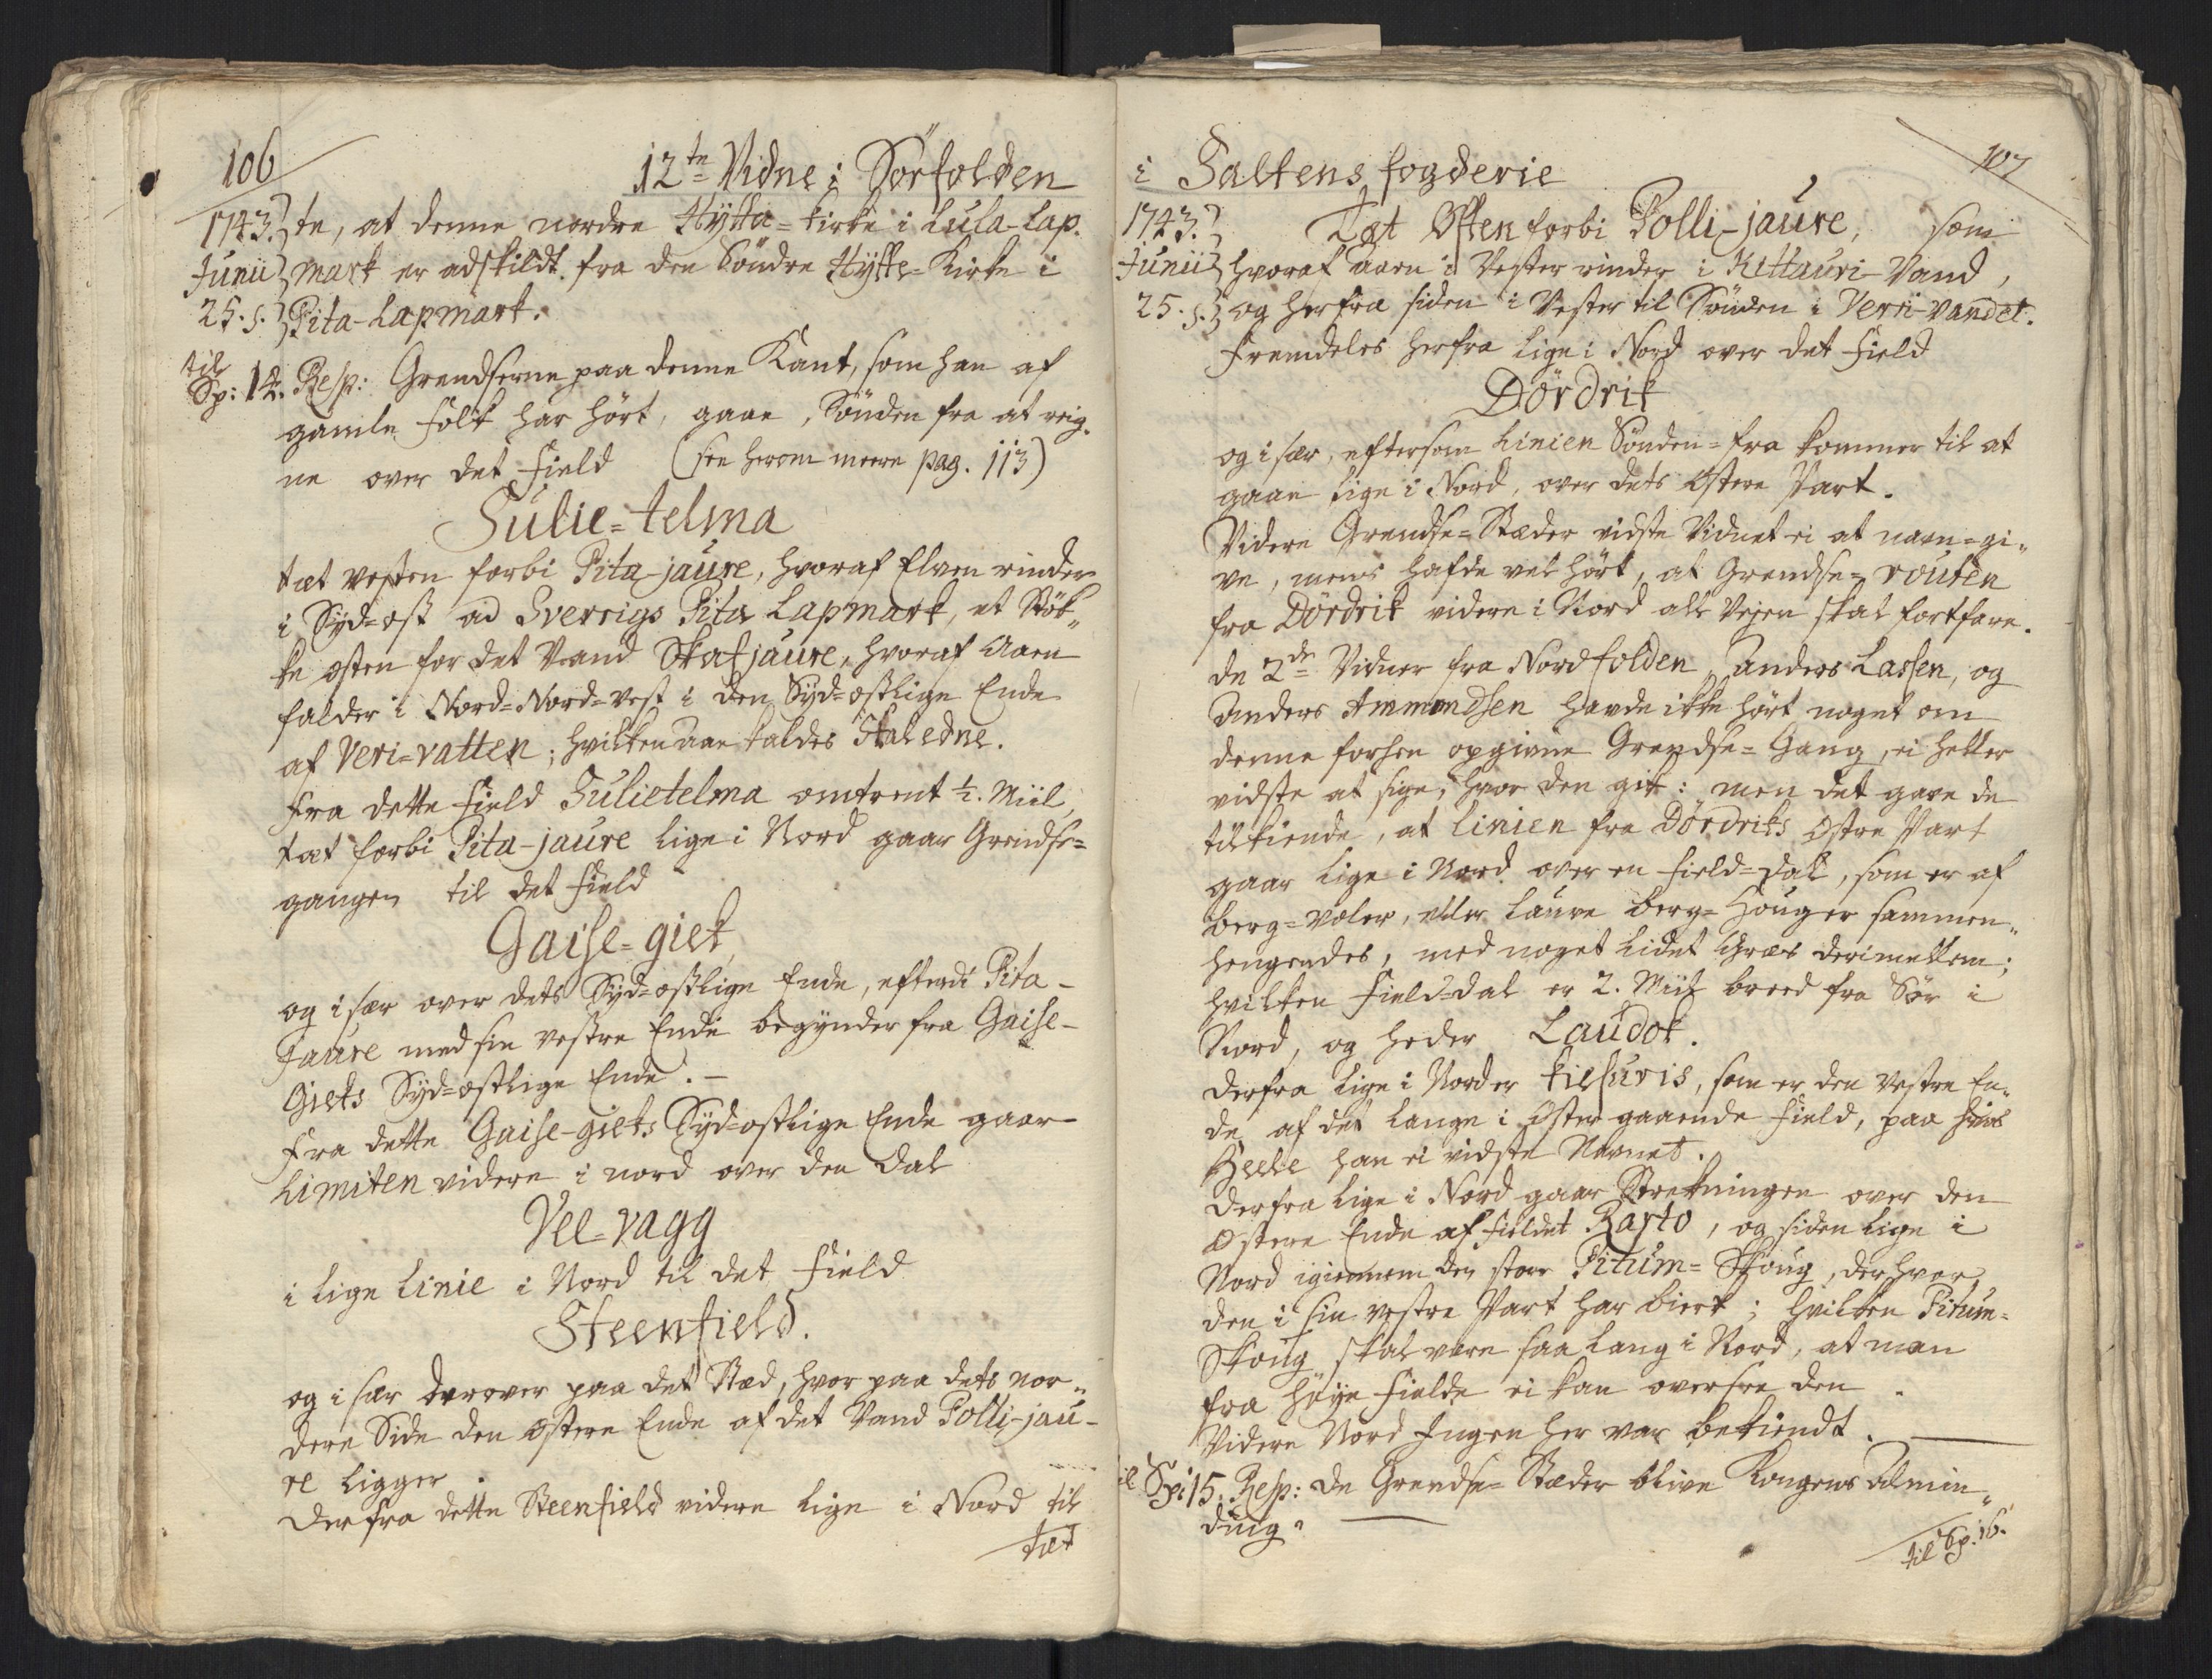 106
12te Vidne i Sörfolden
1743. te, at denne nordre Hytta-kirke i Lula-Lap.
Junii mark er adskildt fra den Söndre Hytte-Kirke i
25. s. Pita-Lapmark.
til Sp: 14. Resp: Grendserne paa denne Kant, som han af
gamle folk har hört, gaae, Sönden fra at reig-
ne over det field (see herom meere pag. 113)
Sulie-telma
tæt vesten forbi Pita-jaure, hvoraf Elven rinder
i Syd-ost ad Sverrigs Pita Lapmark, et Stök„
ke osten for det Vand Skatjaure, hvoraf Aaen
falder i Nord-Nord-vest i den Syd-ostlige Ende
af Veri-vatten; hvilken aae kaldes Staledne.
Fra dette field Sulietelma omtrent ½. Miil,
tæt forbi Pita-jaure lige i Nord gaar Grendse-
gangen til det field
Gaise-giet
og i sær over dets Syd-ostlige Ende, efterdi Pita-
Jaure med sin vestre Ende begynder fra Gaise-
Giets Syd-ostlige Ende. -
Fra dette Gaise-giets Syd-ostlige Ende gaar
Limiten videre i nord over den dal
Vel-vagg
i lige Linie i Nord til det field
Steenfield.
og i sær derover paa det Stæd, hvor paa dets nor„
dere Side den Ostere Ende af det Vand Polli-jau-
re ligger.
Derfra dette Steenfield videre lige i Nord til
tæt
107
i Saltens fogderie
1743. Tæt Osten forbi Polli-jaure, som
Junii hvoraf aaen i Vester rinder i Kittauri-Vand,
25. s. og herfra siden i Vester til Sönden i Verri-vandet.
Fremdeles herfra lige i Nord over det field
Dördrik
og i sær, eftersom Linien Sönden-fra kommer til at
gaae lige i Nord, over dets Ostere Part.
Videre Grendse-Stæder vidste Vidnet ei at navn-gi„
ve, mens hafde vel hört, at Grendse-routen
fra Dördrik videre i Nord alle Vejen skal fortfare.
de 2de Vidner fra Nordfolden, Anders Lassen, og
Anders Ammondsen havde ikke hört noget om
denne forhen opgivne Grendse-Gang, ei heller
vidste at sige, hvor den gik: men det gave de
tilkiende, at Linien fra Dördriks Ostre Part
gaar lige i Nord over en field-dal, som er af
berg-voler, eller Lauve berg-Houger sammen„
hengendes, med noget lidet Græs derimellem;
hvilken field-dal er 2. Miil breed fra Sör i
Nord, og heder Laudok.
Derfra lige i Nord er Kilsuris, som er den Vestre En„
de af det lange i Oster gaaende field, paa hvis
Heele han ei vidste Navnet.
Derfra lige i Nord gaar Strekningen over den
Ostere Ende af fieldet Rasto, og siden lige i
Nord igiennem den store Pitum-Skoug, der hvor
den i sin vestre Part har bierk; hvilken Pitum-
Skoug skal være saa lang i Nord, at man
fra höye fielde ei kan oversee den.
Videre Nord Ingen her var bekiendt.
til Sp: 15. Resp: De Grendse-Stæder blive Kongens Almin„
ding.
til Sp. 16.